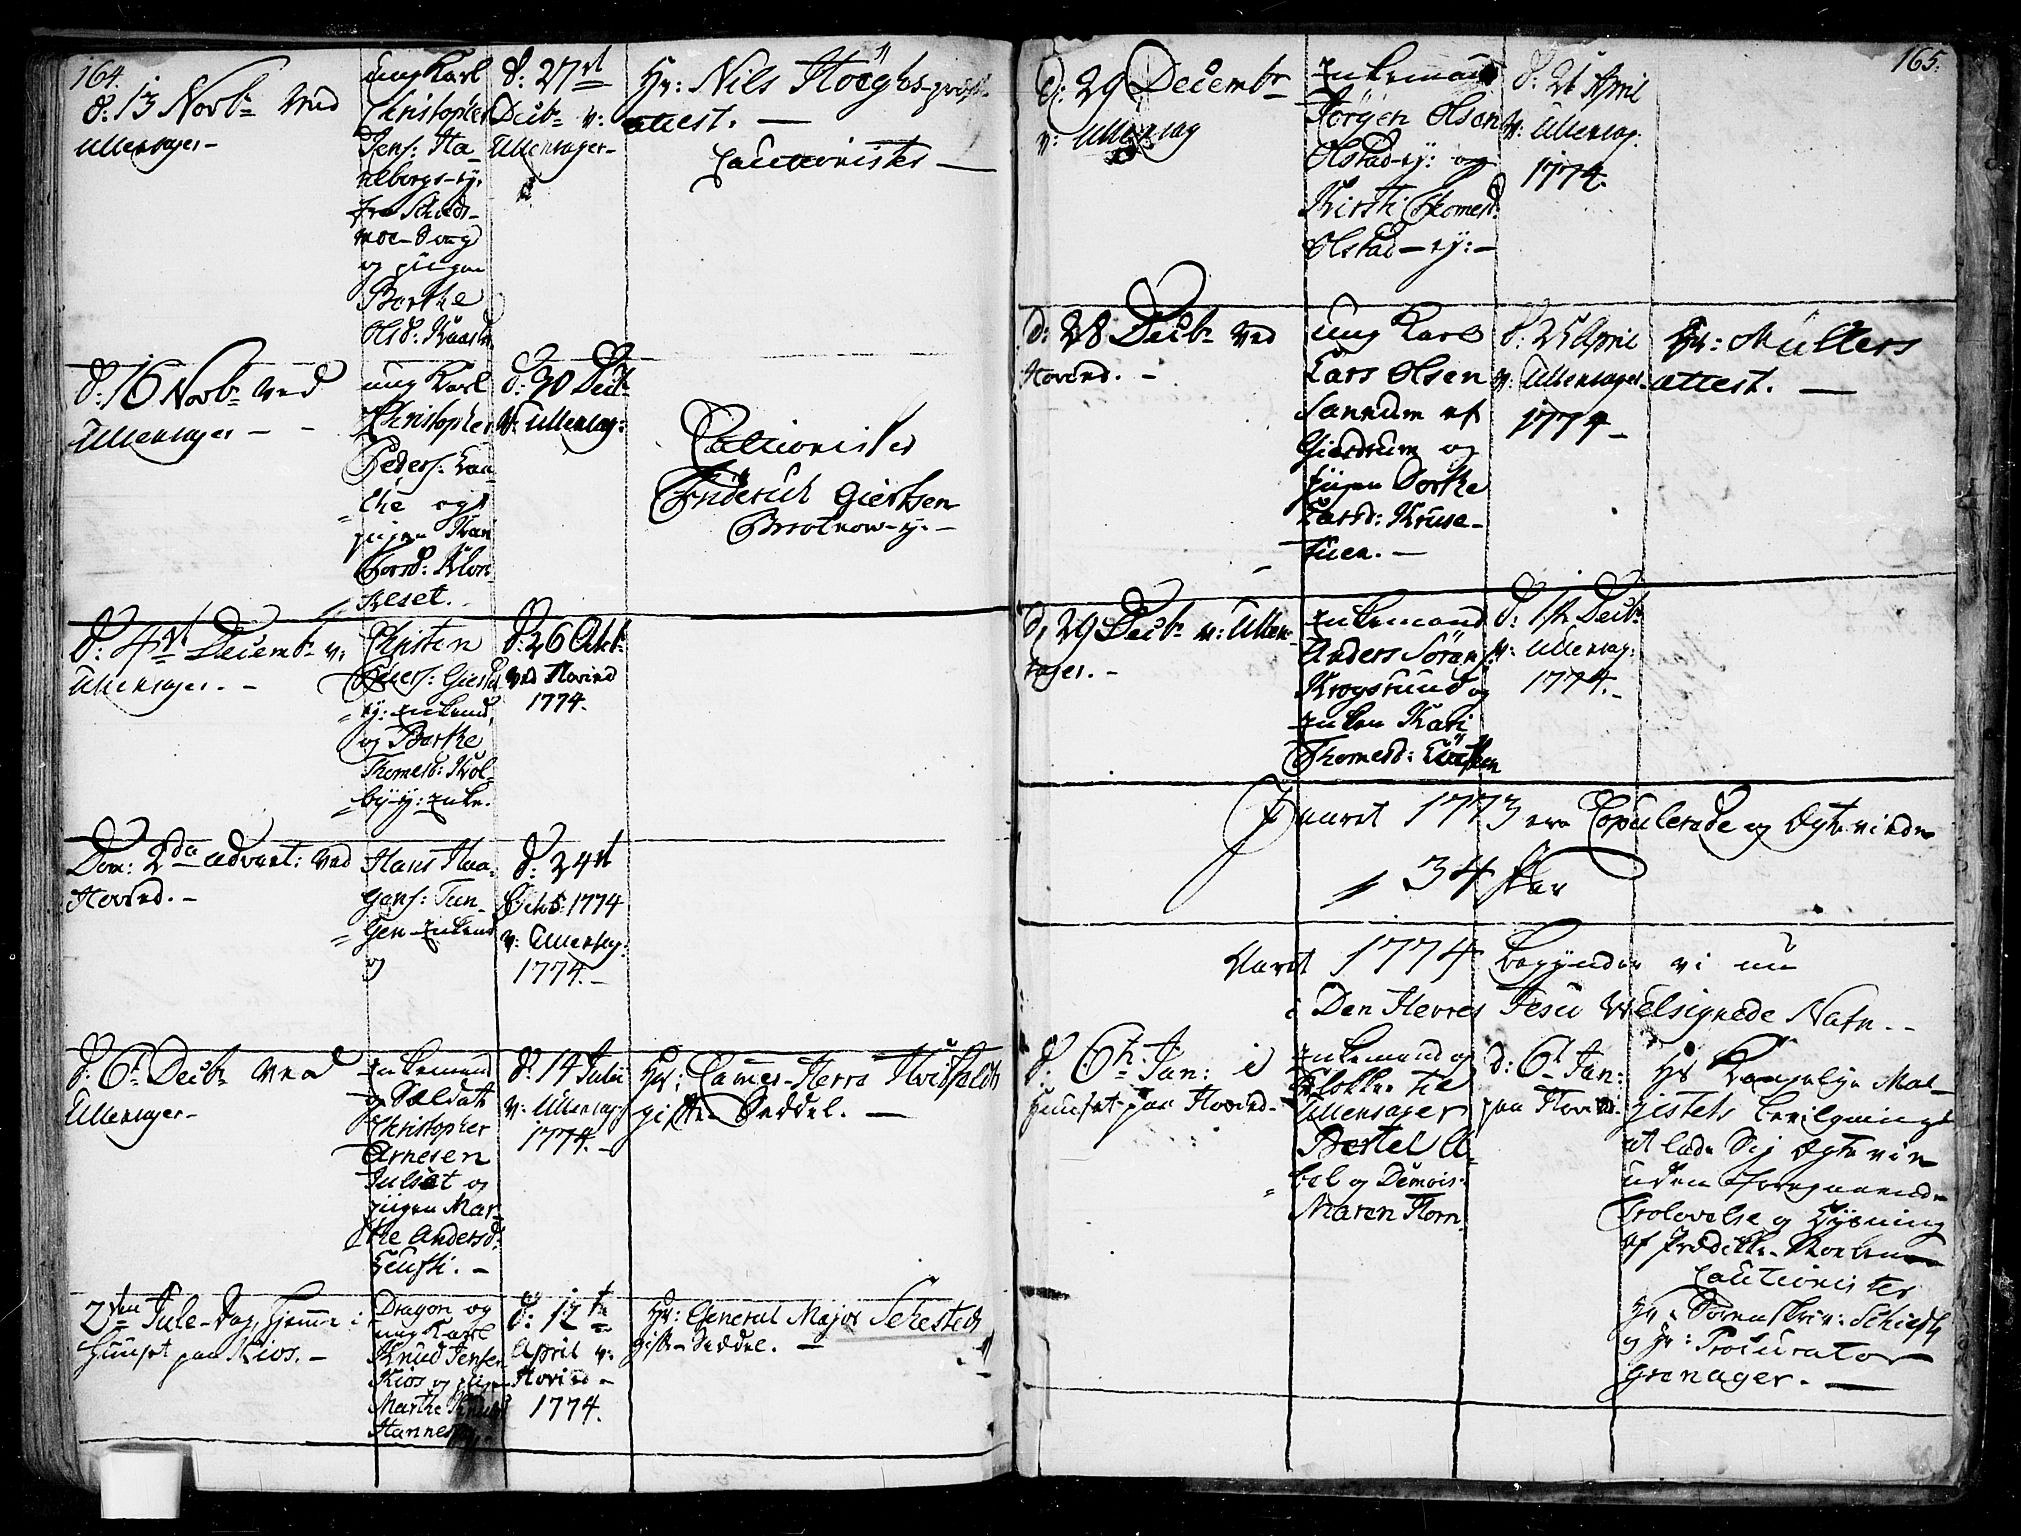 164.
d: 13 Novbr ved
Ullensager-
ung Karl
Christopher
Jens: Ha-
neborgs-ej:
fra Skieds-
moe-Sogn
og pigen
Berthe
Olsd: Kaasta
d: 27de
Decbr v:
Ullensager-
Hr: Nils Höeghs
attest. —
Cautionister —
d: 16 Novbr ved
Ullensager - -
ung Karl
Christopher
Peders:
og
pigen Kari
Torsd: Kløn-
keset.
d: 30 Decb:
v: Ullensag:
Cautionister
Friderich Giertsen
Brotnow-ej. -
d: 4de Decembr v:
Ullensager. -
Christen
Peders:
ej: Enkemd,
og Berthe
Thomesd: Kol-
by-ej: Enke.
d: 26 Octb:
ved Hovind
1774.
Dom: 2da advent: ved
Hovind. -
Hans Haa-
gens: Tun-
gen Enkemd
og
d: 24de
Octob 1774
v: Ullensag:
1774.-
d: 6t Decbr ved
Ullensager-
Enkemand
og Soldat
Christopher
Arnesen
Julset og
pigen Mar-
the Andersd:
d: 14 Julii
v: Ullensag:
1774.-
Hr: Camer-Herre Hvitfelds
gifte Seddel. —
2den Jule-Dag, Hiemme i
Huuset paa Kios. -
Dragon og
ung Karl
Knud Jensen
Kios og pigen
Marthe
d: 12te
April v:
Hovind -
1774.
Hr: General Major Sehesteds
gifte-Seddel. —
165.
d: 29 Decembr
v: Ullensag
Enkemand
Jörgen Olsen
Olstad-ej: og
Kirsti Thomesd:
Olstad-ej:-
d: 21 April
v: Ullensag:
1774.
d: 28 Decbr ved
Hovind. -
ung Karl
Lars Olsen
Sannum af
Gierdrum og
pigen Dorthe
Larsd: Kruse-
tuen. —
d: 25 April
v: Ullensager
1774 -
Hr: Müllers
attest. —
d, 29 Decbr v: Ullen-
sager. -
Enkemand
Anders Sörens:
Krogsrund og
Enken Kari
Thomesd:
d: 12 Decbr
v: Ullensag:
1774.-
I aaret 1773 ere Copulerede og Egteviede
34 Par
Aaret 1774 begynder vi nu
i Den Herres Jesu Velsignede Nafn. --
d: 6te Jan: i
Huuset paa Hovind.
Enkemand og
Klokker til
Ullensager
Bertel A-
bel og Demois:
Maren Horn.
d: 6t Jan:
paa Hovind.
Maj-
jistets bevilgning
at lade Sig Egte vie
uden foregaaende
Trolovelse og Lysning
af Prædike-Stoelen
Cautionister
Hr: Sorenskriv: Schiøtz
og Hr: Procurator
Grønager. —